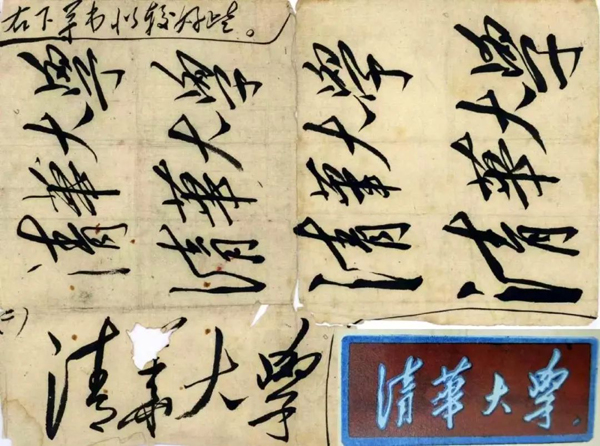 右下草书似较好些。
清華大學
清華大學
清華大學
清華大學
清華大學
清華大學